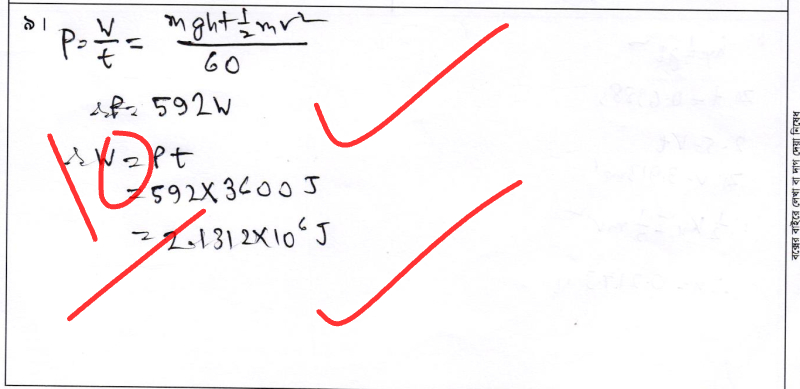 ১।
P = W/t = (mgh + ½mv²)/60
∴ P = 592W
∴ W = Pt
= 592 × 3600 J
= 2.1312 × 10⁶ J
10
বক্সের বাইরে লেখা বা দাগ দেয়া নিষেধ